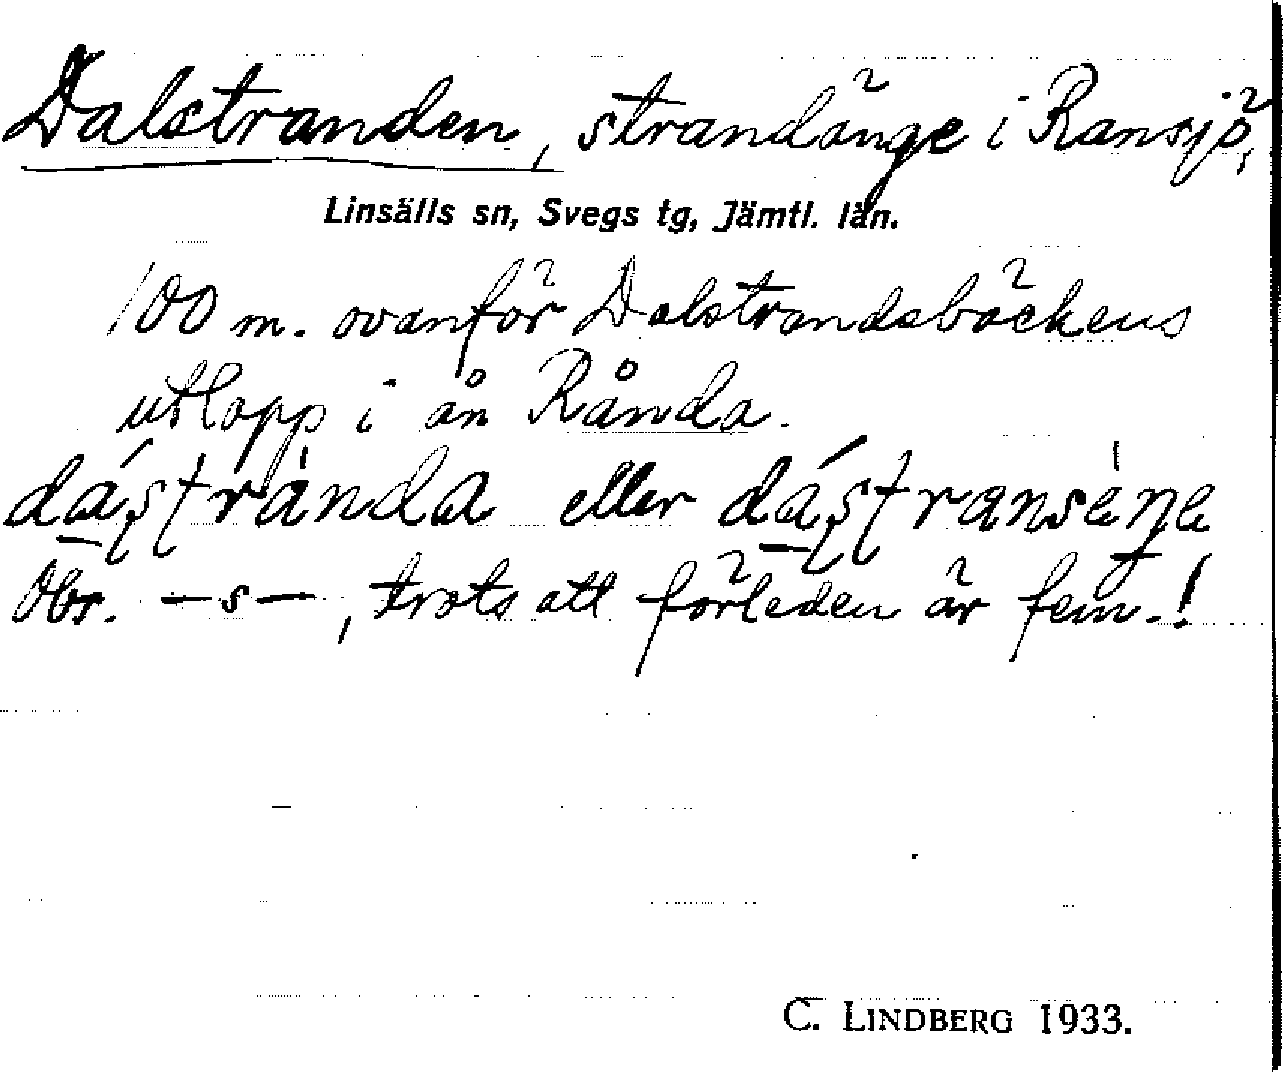 Dalstranden, strandänge i Ransjö,
Linsälls sn, Svegs tg, Jämtl. län.
100 m. ovanför Dalstrandsbäckens
utlopp i ån Rånda.
dás̨t̨rànda eller dás̨t̨ransène
Obs. —s—, trots att förleden är fem.!
C. LINDBERG 1933.